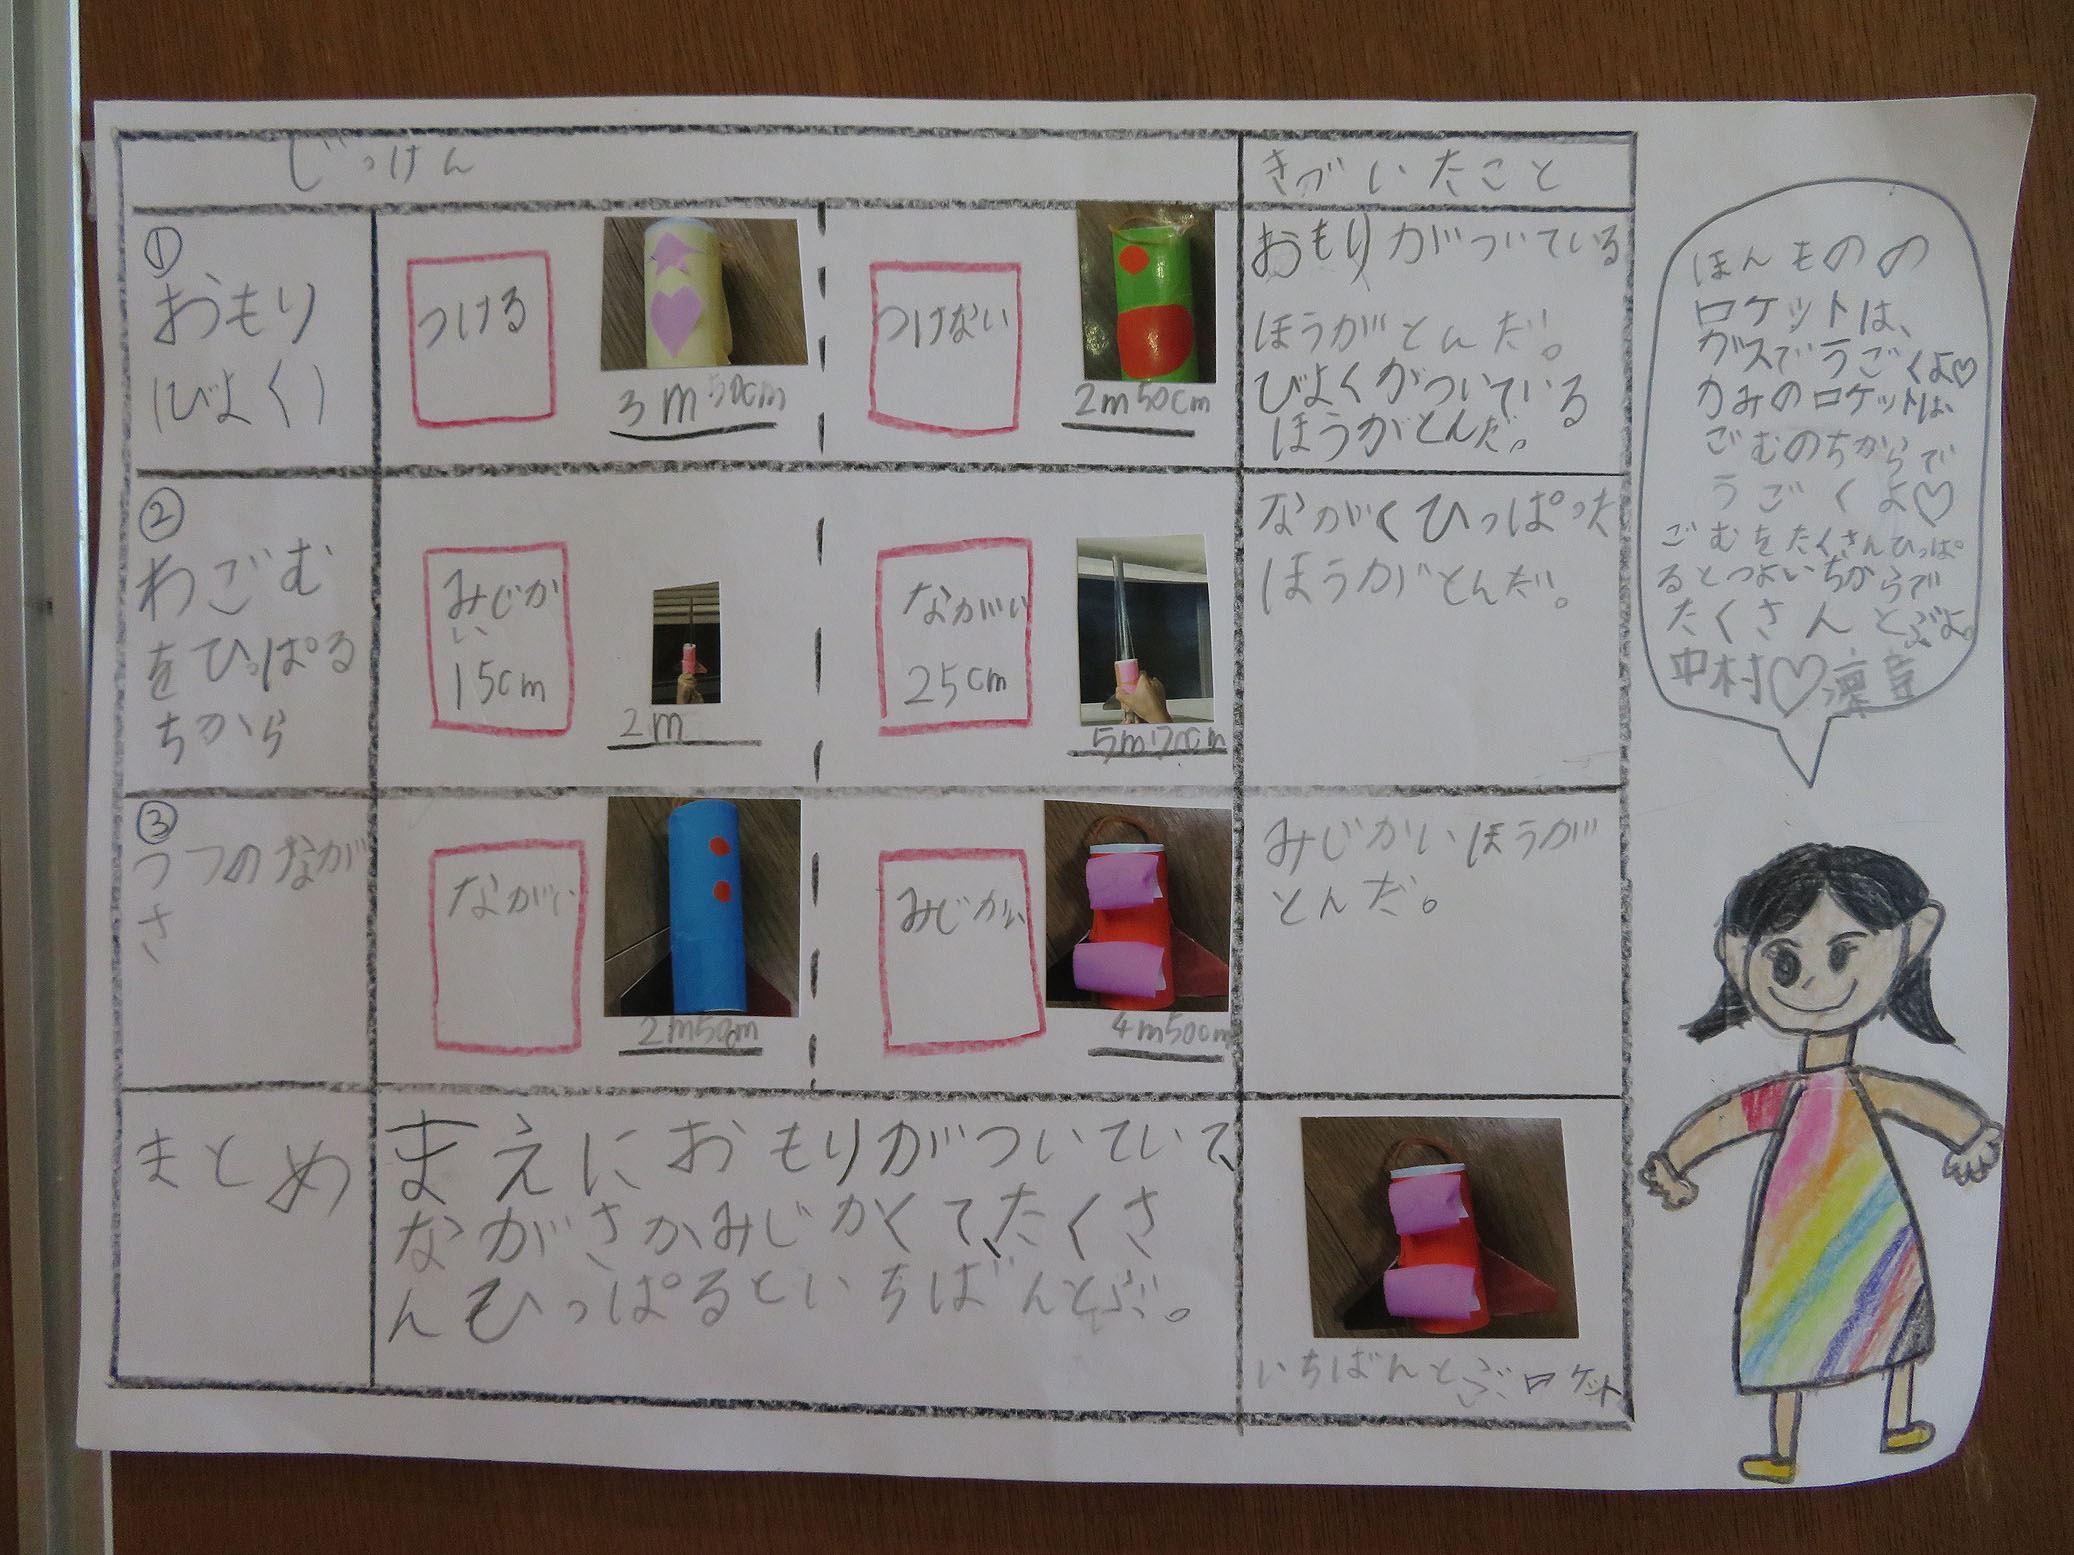 じっけん
きづいたこと
①
おもり
(びよく)
つける
3m50cm
つけない
2m50cm
おもりがついている
ほうがとんだ。
びよくがついている
ほうがとんだ。
②
わごむ
をひっぱる
ちから
みじか
い
15cm
2m
ながい
25cm
5m70cm
ながくひっぱった
ほうがとんだ。
③
つつのなが
さ
ながい
2m50cm
みじかい
4m50cm
みじかいほうが
とんだ。
まとめ
まえにおもりがついていて、
ながさがみじかくて、たくさ
んひっぱるといちばんとぶ。
いちばんとぶロケット
ほんものの
ロケットは、
ガスでうごくよ♡
かみのロケットは
ごむのちからで
うごくよ♡
ごむをたくさんひっぱ
るとつよいちからで
たくさんとぶよ。
中村♡凛